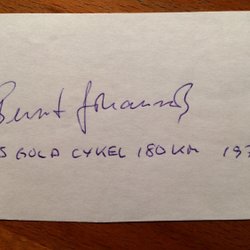 Bernt Johansson
S GOLD CYKEL 180 KM 197